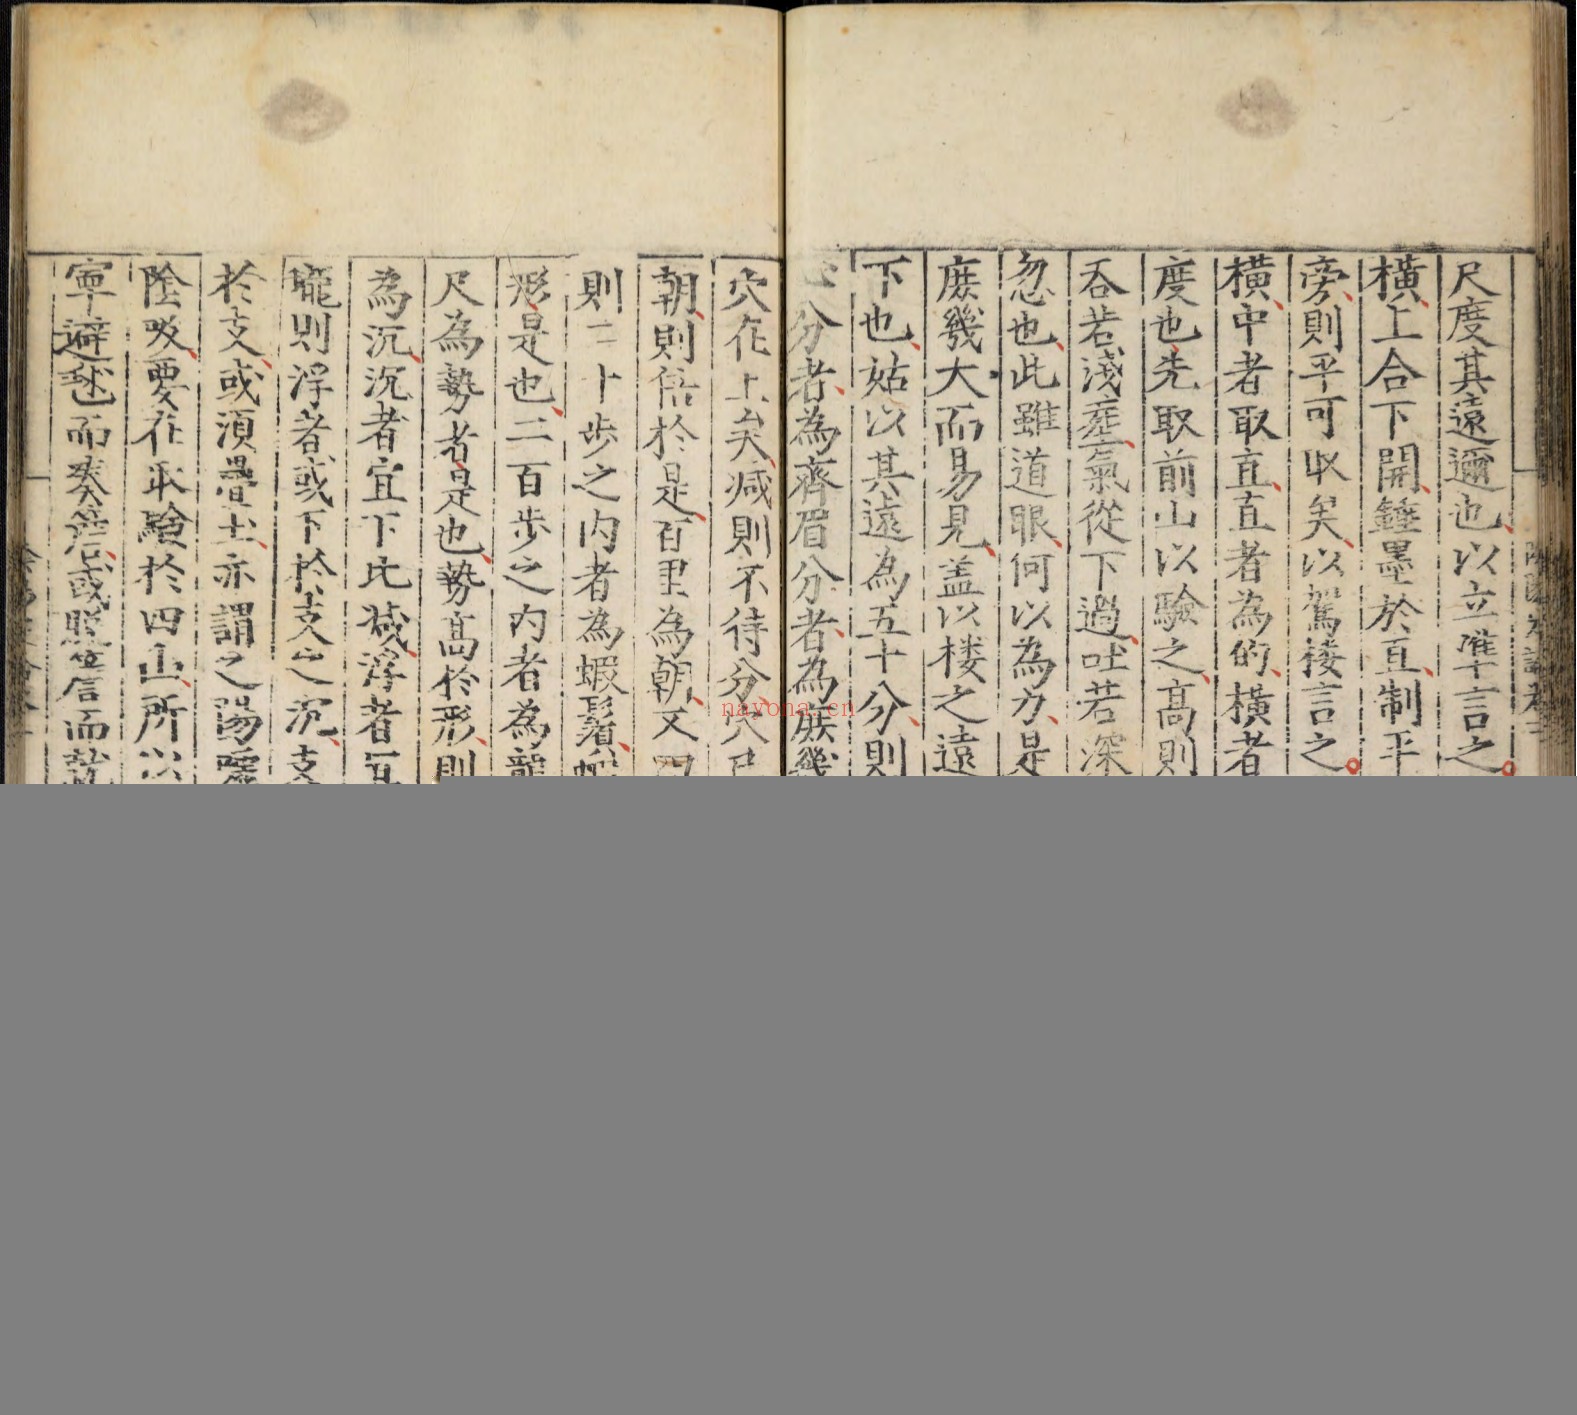 尺度其遠邇也以立準言之
橫上合下開錘墨於直制平
旁則平可取矣以駕樓言之
橫中者取直直者為的橫者
度也先取前山以驗之高則
吞若淺塟氣從下過吐若深
忽也此雖道眼何以為力是
庻幾大而易見盖以楼之遠
下也姑以其遠為五十分則
心分者為齊眉分者為庻幾
穴在上矣减則不待分穴
朝則倍於是百里為朝又四
則二十步之内者為蝦鬚
形是也二百步之内者為龍
尺為勢者是也勢高於形則
為沉沉者宜下此減浮者宜
壠則浮者或下於支之沉支
於支或須疊土亦謂之陽
陰吸要在取驗於四山所以
寧避 而 或 信而
nayona.cn